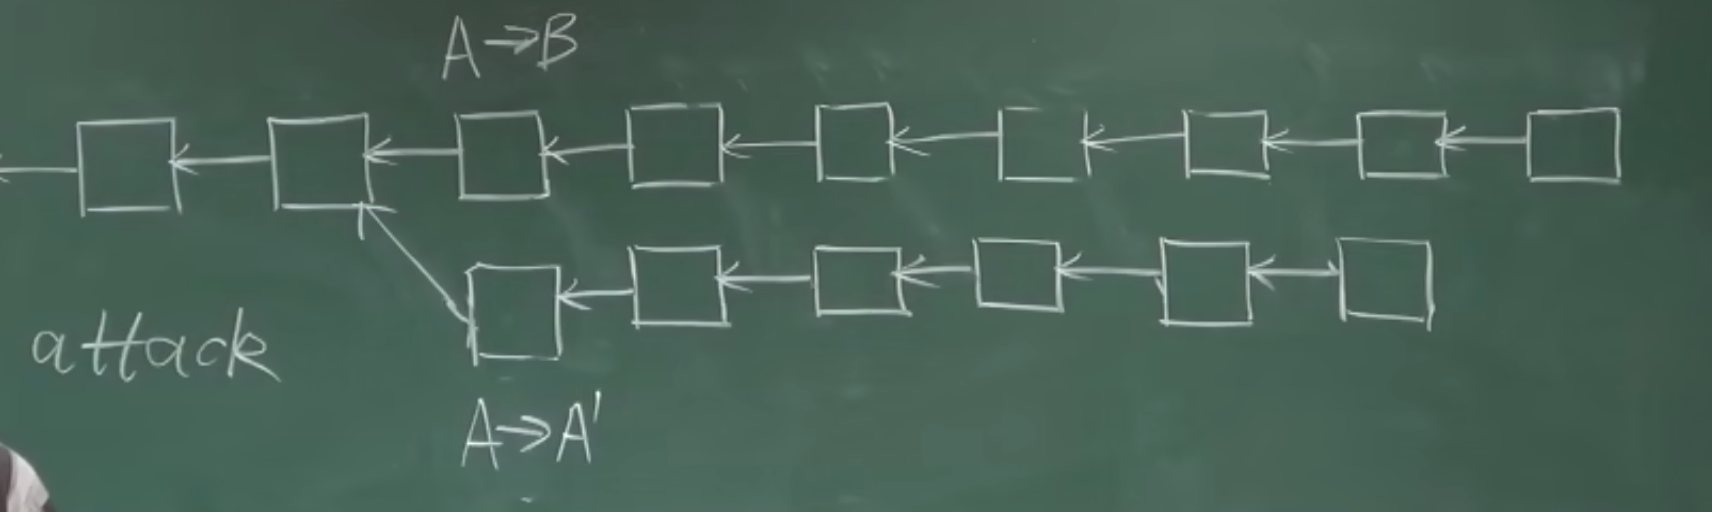 A→B
attack
A→A'